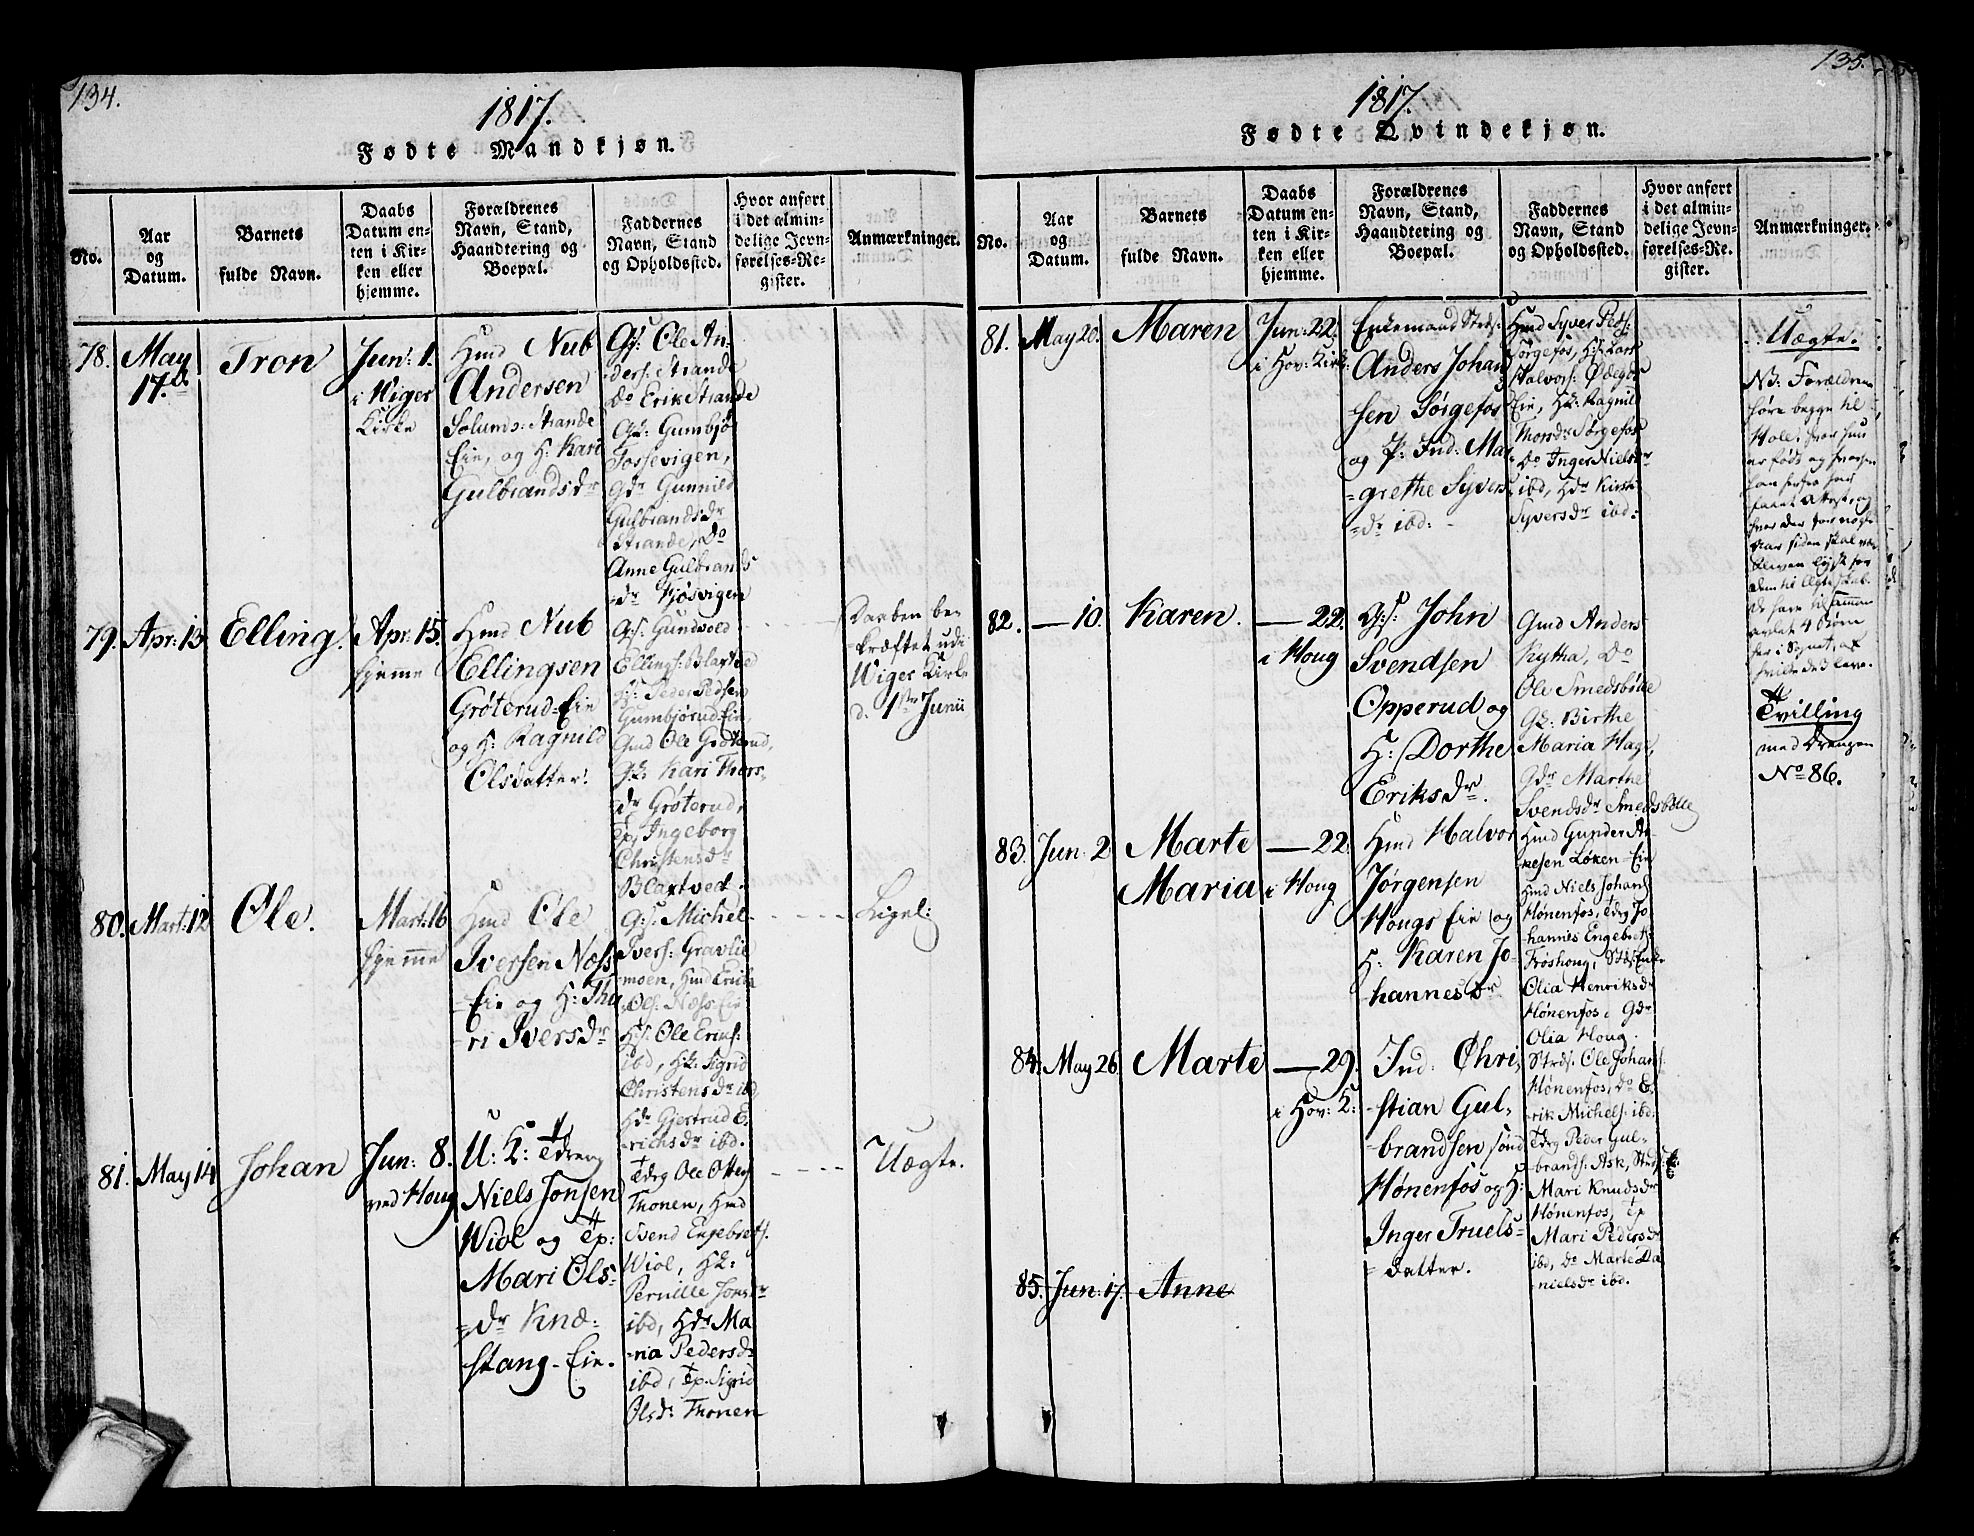 134.
1817.
Fødte Mandkjøn.
No.
Aar
og
Datum.
Barnets
fulde Navn.
Daabs
Datum en-
ten i Kir-
ken eller
hjemme.
Forældrenes
Navn, Stand,
Haandtering og
Boepæl.
Faddernes
Navn, Stand
og Opholdssted.
Hvor anført
i det almin-
delige Jevn-
førelses-Re-
gister.
Anmærkninger.
78.
May
17.
Tron
Jun: 1.
i Wiger
Kirke
Hmd Nub
Andersen
Solums: Strande
Eie, og H: Kari
Gulbrandsdr
GS: Ole An-
ders: Strande
do Erik Strande
GK: Gumbjø
Tossevigen,
Gdr Gunnild
Gulbrandsdr
Strande, do
Anne Gulbrands
=dr Kjøsvigen
79.
Apr: 13
Elling.
Apr: 15.
hjemme
Hmd Nub
Ellingsen
Grøterud-Eie
og H: Ragnild
Olsdatter.
GS: Gundvold
Ellings: Blaxtved
GS: Peder Peds
Gumbjørud-Eie,
Gmd Ole Grøterud,
GK: Kari Thors
=dr Grøterud,
Tp. Ingeborg
Christensdr
Blaxtved.
Daaben be-
kræftet udi
Wiger Kirke
d. 1ste Junii
80.
Mart: 12
Ole.
Mart: 16
hjemme
Hmd Ole
Iversen Næss
-Eie og H: Tho
-ri Iversdr
GS. Michel
Ivers: Gravlie
-moen, Hmd Erik
Ols: Næss Eie
HS. Ole Ericks:
ibd, HK: Sigrid
Christensdr ibd,
Hdr Gjertrud E-
richsdr ibd.
Ligel:
81.
May 14
Johan
Jun: 8.
ved Houg
U: K: Tdreng
Niels Jonsen
Wiol og Tp:
Mari Ols=
=dr Knæ=
stang-Eie.
Tdrg Ole Ottes
Thonen, Hmd
Svend Engebrets.
Wiol, HK:
Pernille Jonsdr
ibd, Hdr Ma
-ria Pedersdr
ibd, Tp. Sigrid
Olsdr Thonen
Uægte.
135.
1817.
Fødte Qvindekjøn.
No.
Aar
og
Datum.
Barnets
fulde Navn.
Daabs
Datum en-
ten i Kir-
ken eller
hjemme.
Forældrenes
Navn, Stand,
Haandtering og
Boepæl.
Faddernes
Navn, Stand
og Opholdssted.
Hvor anført
i det almin-
delige Jevn-
førelses-Re-
gister.
Anmærkninger.
81.
May 20.
Maren
Jun: 22.
i Hov: Kirk:
Enkemand Strds:
Anders Johan
sen Sørgefos
og P: Ind: Mar
=grethe Syvers
=dr ibd:
Hmd Syver Peds:
Sørgefos, HS: Lars
Halvors: Ødegrs
Eie, HK: Ragnild
Thordr Sørgefos
do Inger Nielsdr
ibd, Hdr Kirsti
Syversdr ibd:
Uægte.
NB: Forældrene
høre begge til
Hole, hvor hun
er født og hvorfra
han
faaet Attest, og
hvor der for nogle
Aar siden skal være
bleven lyst for
dem til Ægteskab.
De have tilsammen
avlet 4 Børn
her i Sognet, af
hvilke de 3 leve.
82.
— 10.
Karen.
— 22.
i Houg
GS: John
Svendsen
Opperud og
H: Dorthe
Eriksdr.
Gmd Anders
Kytha, do
Ole Smedsbølle
GK: Birthe
Maria Hage,
Gdr Marthe
Svendsdr Smedsbølle
Tvilling
med Drengen
No 86.
83.
Jun: 2
Marte
Maria
— 22.
i Houg
Hmd Halvor
Jørgensen
Hougs Eie og
H: Karen Jo-
hannesdr
Hmd Gunder As-
kesen Løken-Eie
Hmd Niels Johans
Hønenfos, Tdrg Jo
hannes Engebret
Frøshoug,
Olia Henriksdr
Hønenfos, Gdr
Olia Houg.
84.
May 26
Marte
— 29.
i Hov: K:
Ind: Chri
-stian Gul-
-brandsen sønd
Hønenfos og H:
Inger Truels=
=datter.
Strds: Ole Johans:
Hønenfos, do E-
rik Michels: ibd:
Tdrg Peder Gul-
brands: Ask,
Mari Knudsdr
Hønenfos, Tp
Mari Pedersdr
ibd, do Marte Da
nielsdr ibd.
85.
Jun: 17.
Anne